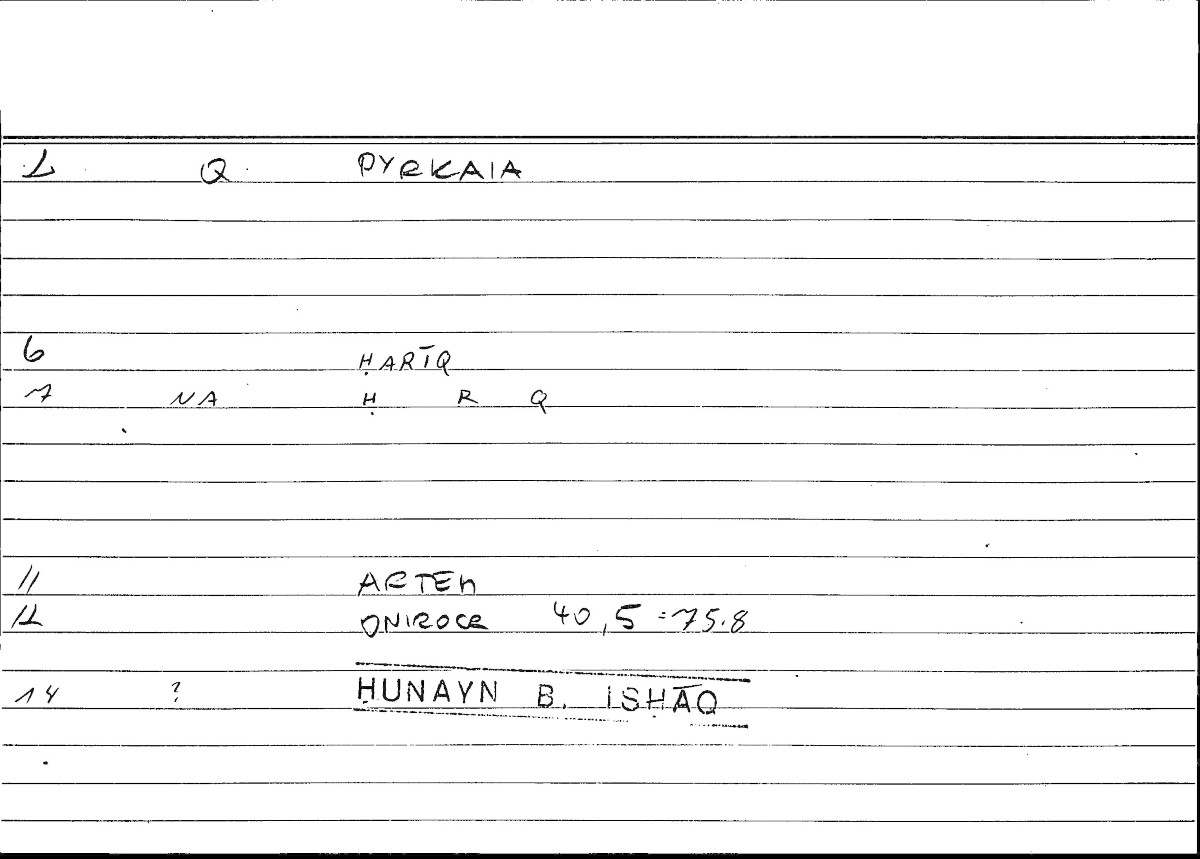 1 Q PYRKAIA
6 ḤARĪQ
7 NA Ḥ R Q
11 ARTEM
12 ONIROCR 40,5=75.8
14 ? ḤUNAYN B. ISḤĀQ